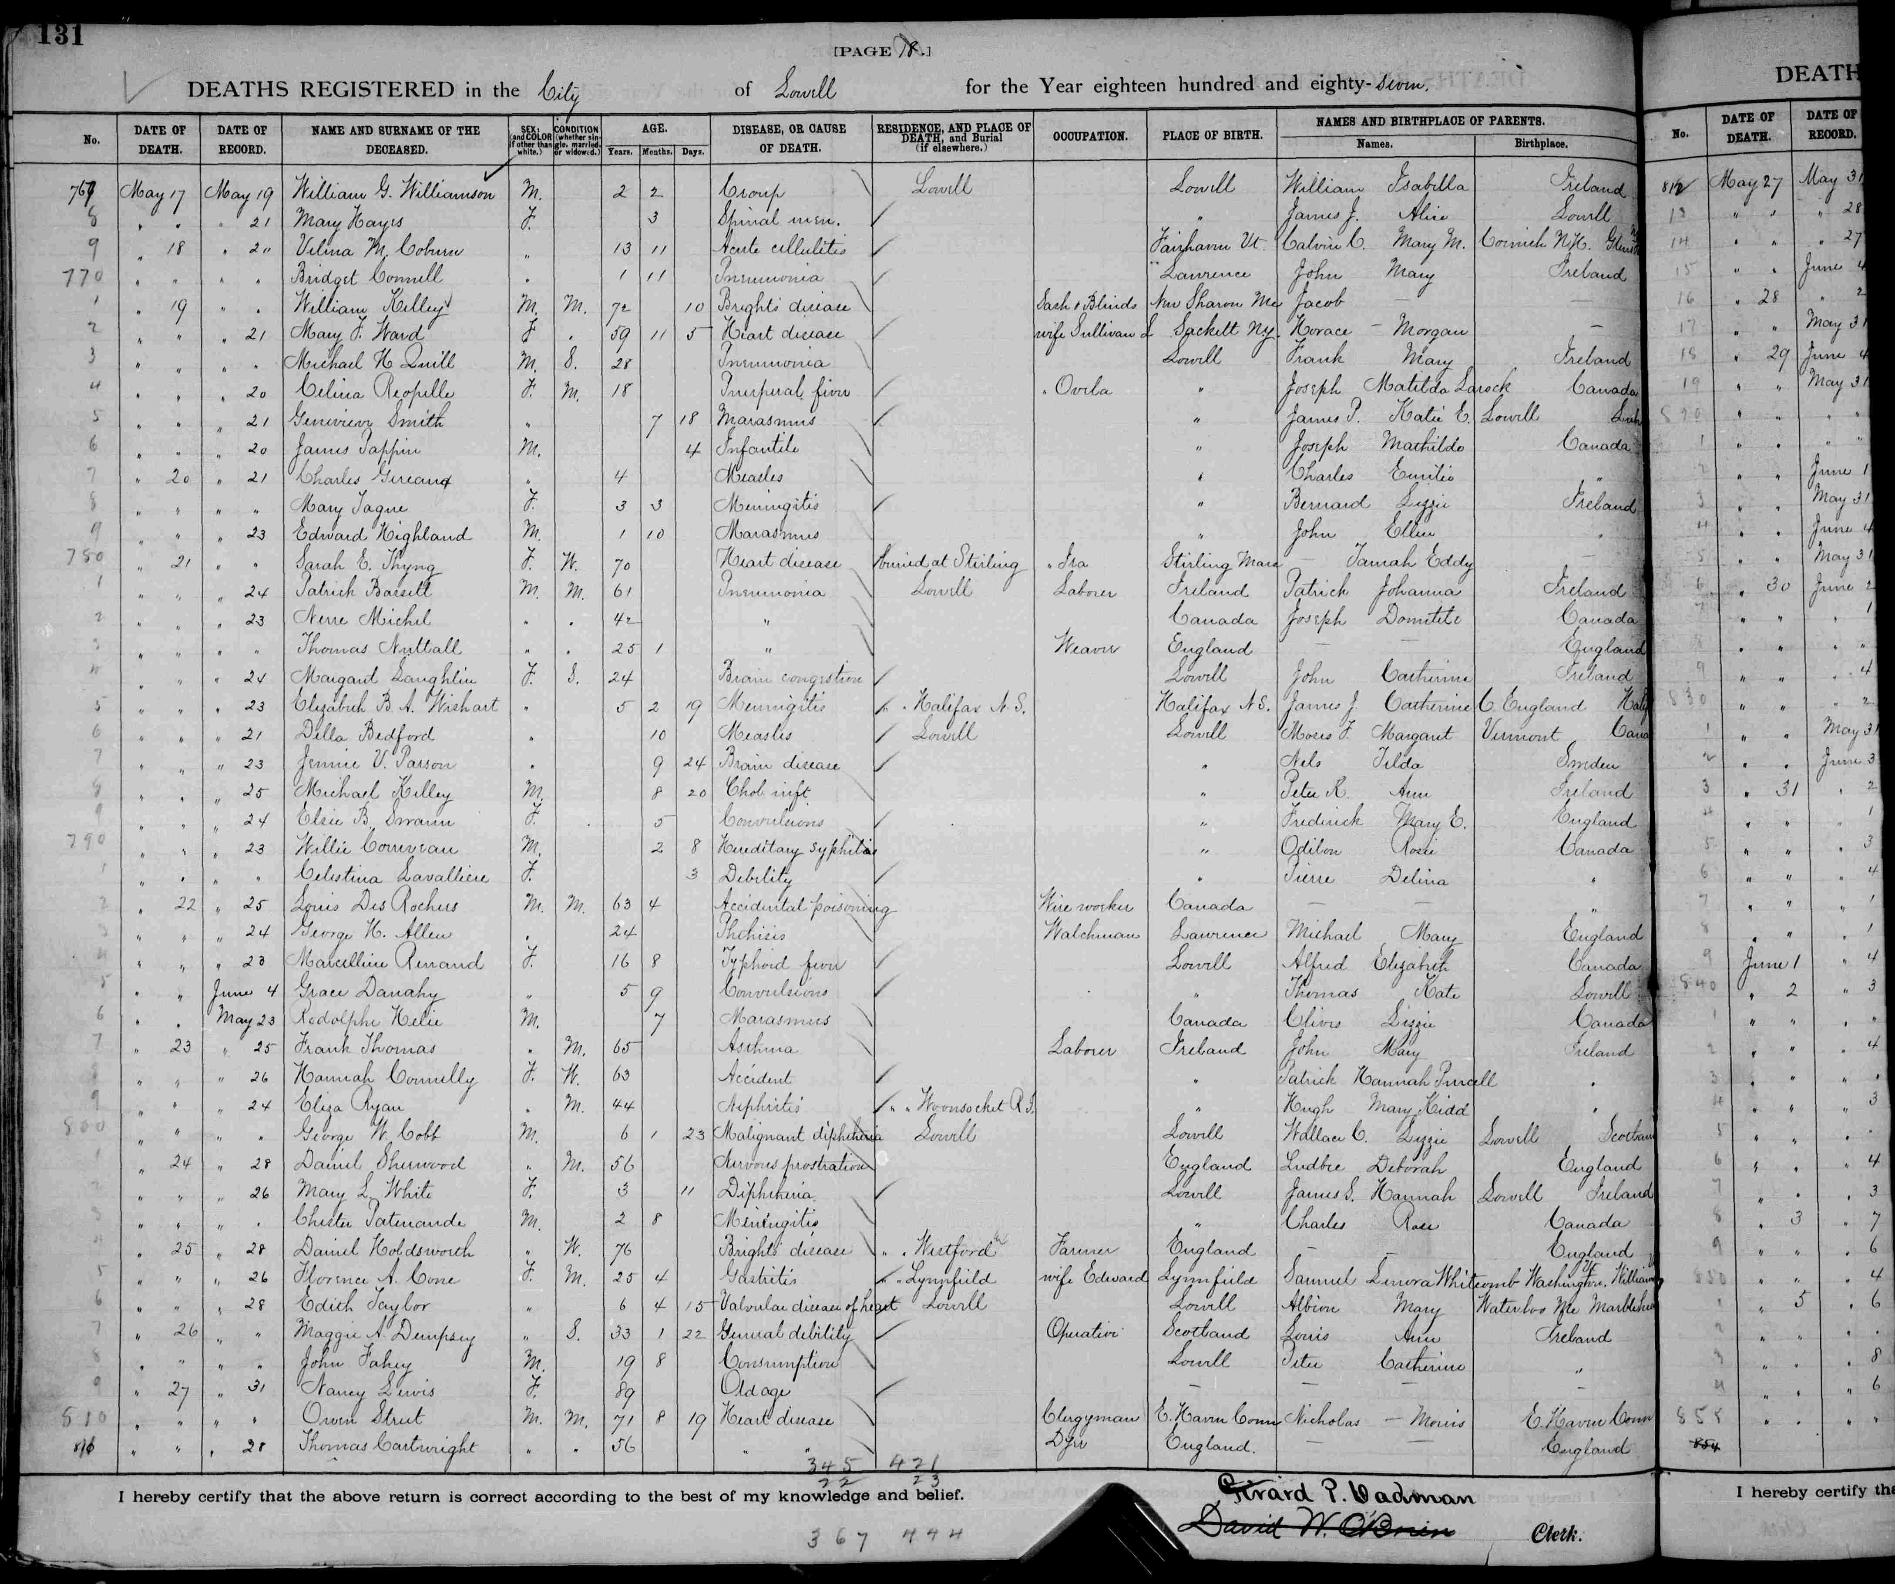 131
[PAGE 78.]
DEATHS REGISTERED in the City of Lowell for the Year eighteen hundred and eighty-seven.
No. DATE OF DEATH. DATE OF RECORD. NAME AND SURNAME OF THE DECEASED. SEX: (and COLOR if other than white.) CONDITION (whether single, married, or widowed.) AGE. Years. Months. Days. DISEASE, OR CAUSE OF DEATH. RESIDENCE, AND PLACE OF DEATH, and Burial (if elsewhere.) OCCUPATION. PLACE OF BIRTH. NAMES AND BIRTHPLACE OF PARENTS. Names. Birthplace.
767 May 17 May 19 William G. Williamson M. 2 2 Croup Lowell Lowell William Isabella Ireland
8 " " " 21 Mary Hayes F. 3 Spinal men. " James J. Alice Lowell
9 " 18 " 20 Velina M. Coburn " 13 11 Acute cellulitis Fairhaven Vt. Calvin C. Mary M. Cornish N.H.
770 " " " " Bridget Connell " 1 11 Pneumonia Lawrence John Mary Ireland
1 " 19 " " William Kelley M. M. 72 10 Brights disease Sash & Blinds New Sharon Me Jacob —
2 " " " 21 Mary F. Ward F. " 59 11 5 Heart disease wife Sullivan L Sackett Ny. Horace — Morgan —
3 " " " " Michael H Quill M. S. 28 Pneumonia Lowell Frank Mary Ireland
4 " " " 20 Celina Reopelle F. M. 18 Puerperal fever " Ovila " Joseph Matilda Larock Canada
5 " " " 21 Genevieve Smith " 7 18 Marasmus " James P. Katie E. Lowell
6 " " " 20 James Pappin M. 4 Infantile " Joseph Mathilde Canada
7 " 20 " 21 Charles Gireaux " 4 Measles " Charles Emilie "
8 " " " " Mary Tague F. 3 3 Meningitis " Bernard Lizzie Ireland
9 " " " 23 Edward Highland M. 1 10 Marasmus " John Ellen "
780 " 21 " " Sarah E. Thyng F. W. 70 Heart disease buried at Stirling " Ira Stirling Mass — Tamah Eddy —
1 " " " 24 Patrick Bassett M. M. 61 Pneumonia Lowell Laborer Ireland Patrick Johanna Ireland
2 " " " 23 Nerre Michel " " 42 " Canada Joseph Domitile Canada
3 " " " " Thomas Nuttall " " 25 1 " Weaver England — — England
4 " " " 24 Margaret Laughlin F. S. 24 Brain congestion Lowell John Catherine Ireland
5 " " " 23 Elizabeth B. A. Wishart " 5 2 19 Meningitis " " Halifax N.S. Halifax N.S. James J. Catherine C. England
6 " " " 21 Della Bedford " 10 Measles Lowell Lowell Moses F. Margaret Vermont
7 " " " 23 Jennie V. Parson " 9 24 Brain disease " Nels Tilda Sweden
8 " " " 25 Michael Kelley M. 8 20 Chol. inft. " Peter R. Ann Ireland
9 " " " 24 Elsie B. Swann F. 5 Convulsions " Frederick Mary E. England
790 " " " 23 Willie Corriveau M. 2 8 Hereditary syphilis " Odilon Rosie Canada
1 " " " " Celestina Lavalliere F. 3 Debility " Pierre Delina "
2 " 22 " 25 Louis Des Rochers M. M. 63 4 Accidental poisoning Wire worker Canada — — "
3 " " " 24 George H. Allen " 24 Phthisis Watchman Lawrence Michael Mary England
4 " " " 23 Marcelline Renaud F. 16 8 Typhoid fever Lowell Alfred Elizabeth Canada
5 " " June 4 Grace Danahy " 5 9 Convulsions " Thomas Kate Lowell
6 " " May 23 Rodolphe Helie M. 7 Marasmus Canada Lizzie Canada
7 " 23 " 25 Frank Thomas " M. 65 Asthma Laborer Ireland John Mary Ireland
8 " " " 26 Hannah Connelly F. W. 63 Accident " Patrick Hannah Purcell "
9 " " " 24 Eliza Ryan " M. 44 Nephritis " " Woonsocket R.I. " Hugh Mary Kidd "
800 " " " " George W. Cobb M. 6 1 23 Malignant diphtheria Lowell Lowell Wallace C. Lizzie Lowell
1 " 24 " 28 Daniel Sherwood " M. 56 Nervous prostration England Deborah England
2 " " " 26 Mary L. White F. 3 11 Diphtheria Lowell James S. Hannah Lowell Ireland
3 " " " " Chester Patenaude M. 2 8 Meningitis " Charles Rose Canada
4 " 25 " 28 Daniel Holdsworth " W. 76 Brights disease " " Westford Farmer England — — England
5 " " " 26 Florence A. Cone F. M. 25 4 Gastritis " " Lynnfield wife Edward Lynnfield Samuel Lenora Whitcomb Washington,
6 " " " 28 Edith Taylor " 6 4 15 Valvular disease of heart Lowell Lowell Albion Mary Waterloo Me
7 " 26 " " Maggie A. Dempsey " S. 33 1 22 General debility Operative Scotland Louis Ann Ireland
8 " " " " John Fahey M. 19 8 Consumption Lowell Peter Catherine "
9 " 27 " 31 Nancy Lewis F. 89 Old age — — — —
810 " " " " Owen Street M. M. 71 8 19 Heart disease Clergyman E. Haven Conn Nicholas — Morris E. Haven Conn
" " " 28 Thomas Cartwright " " 56 " " Dyer England. — — England
345 421
22 23
I hereby certify that the above return is correct according to the best of my knowledge and belief.
Girard P. Dadman
David W. O'Brien Clerk.
367 444
DEATH
No. DATE OF DEATH. DATE OF RECORD.
812 May 27 May 31
13 " " " 28
14 " " " 27
15 " " June 4
16 " 28 " 2
17 " " May 31
18 " 29 June 4
19 " " May 31
820 " " " "
1 " " " "
2 " " June 1
3 " " May 31
4 " " June 4
5 " " May 31
6 " 30 June 2
7 " " " 1
8 " " " "
9 " " " 4
830 " " " 2
1 " " May 31
2 " " June 3
3 " 31 " 2
4 " " " 1
5 " " " 3
6 " " " 4
7 " " " 1
8 " " " 1
9 June 1 " 4
840 " 2 " 3
1 " " " "
2 " " " 4
3 " " " "
4 " " " 3
5 " " " "
6 " " " 4
7 " " " 3
8 " 3 " 7
9 " " " 6
850 " " " 4
1 " 5 " 6
2 " " " "
3 " " " 8
4 " " " 6
858 " " " "
854
I hereby certify tha